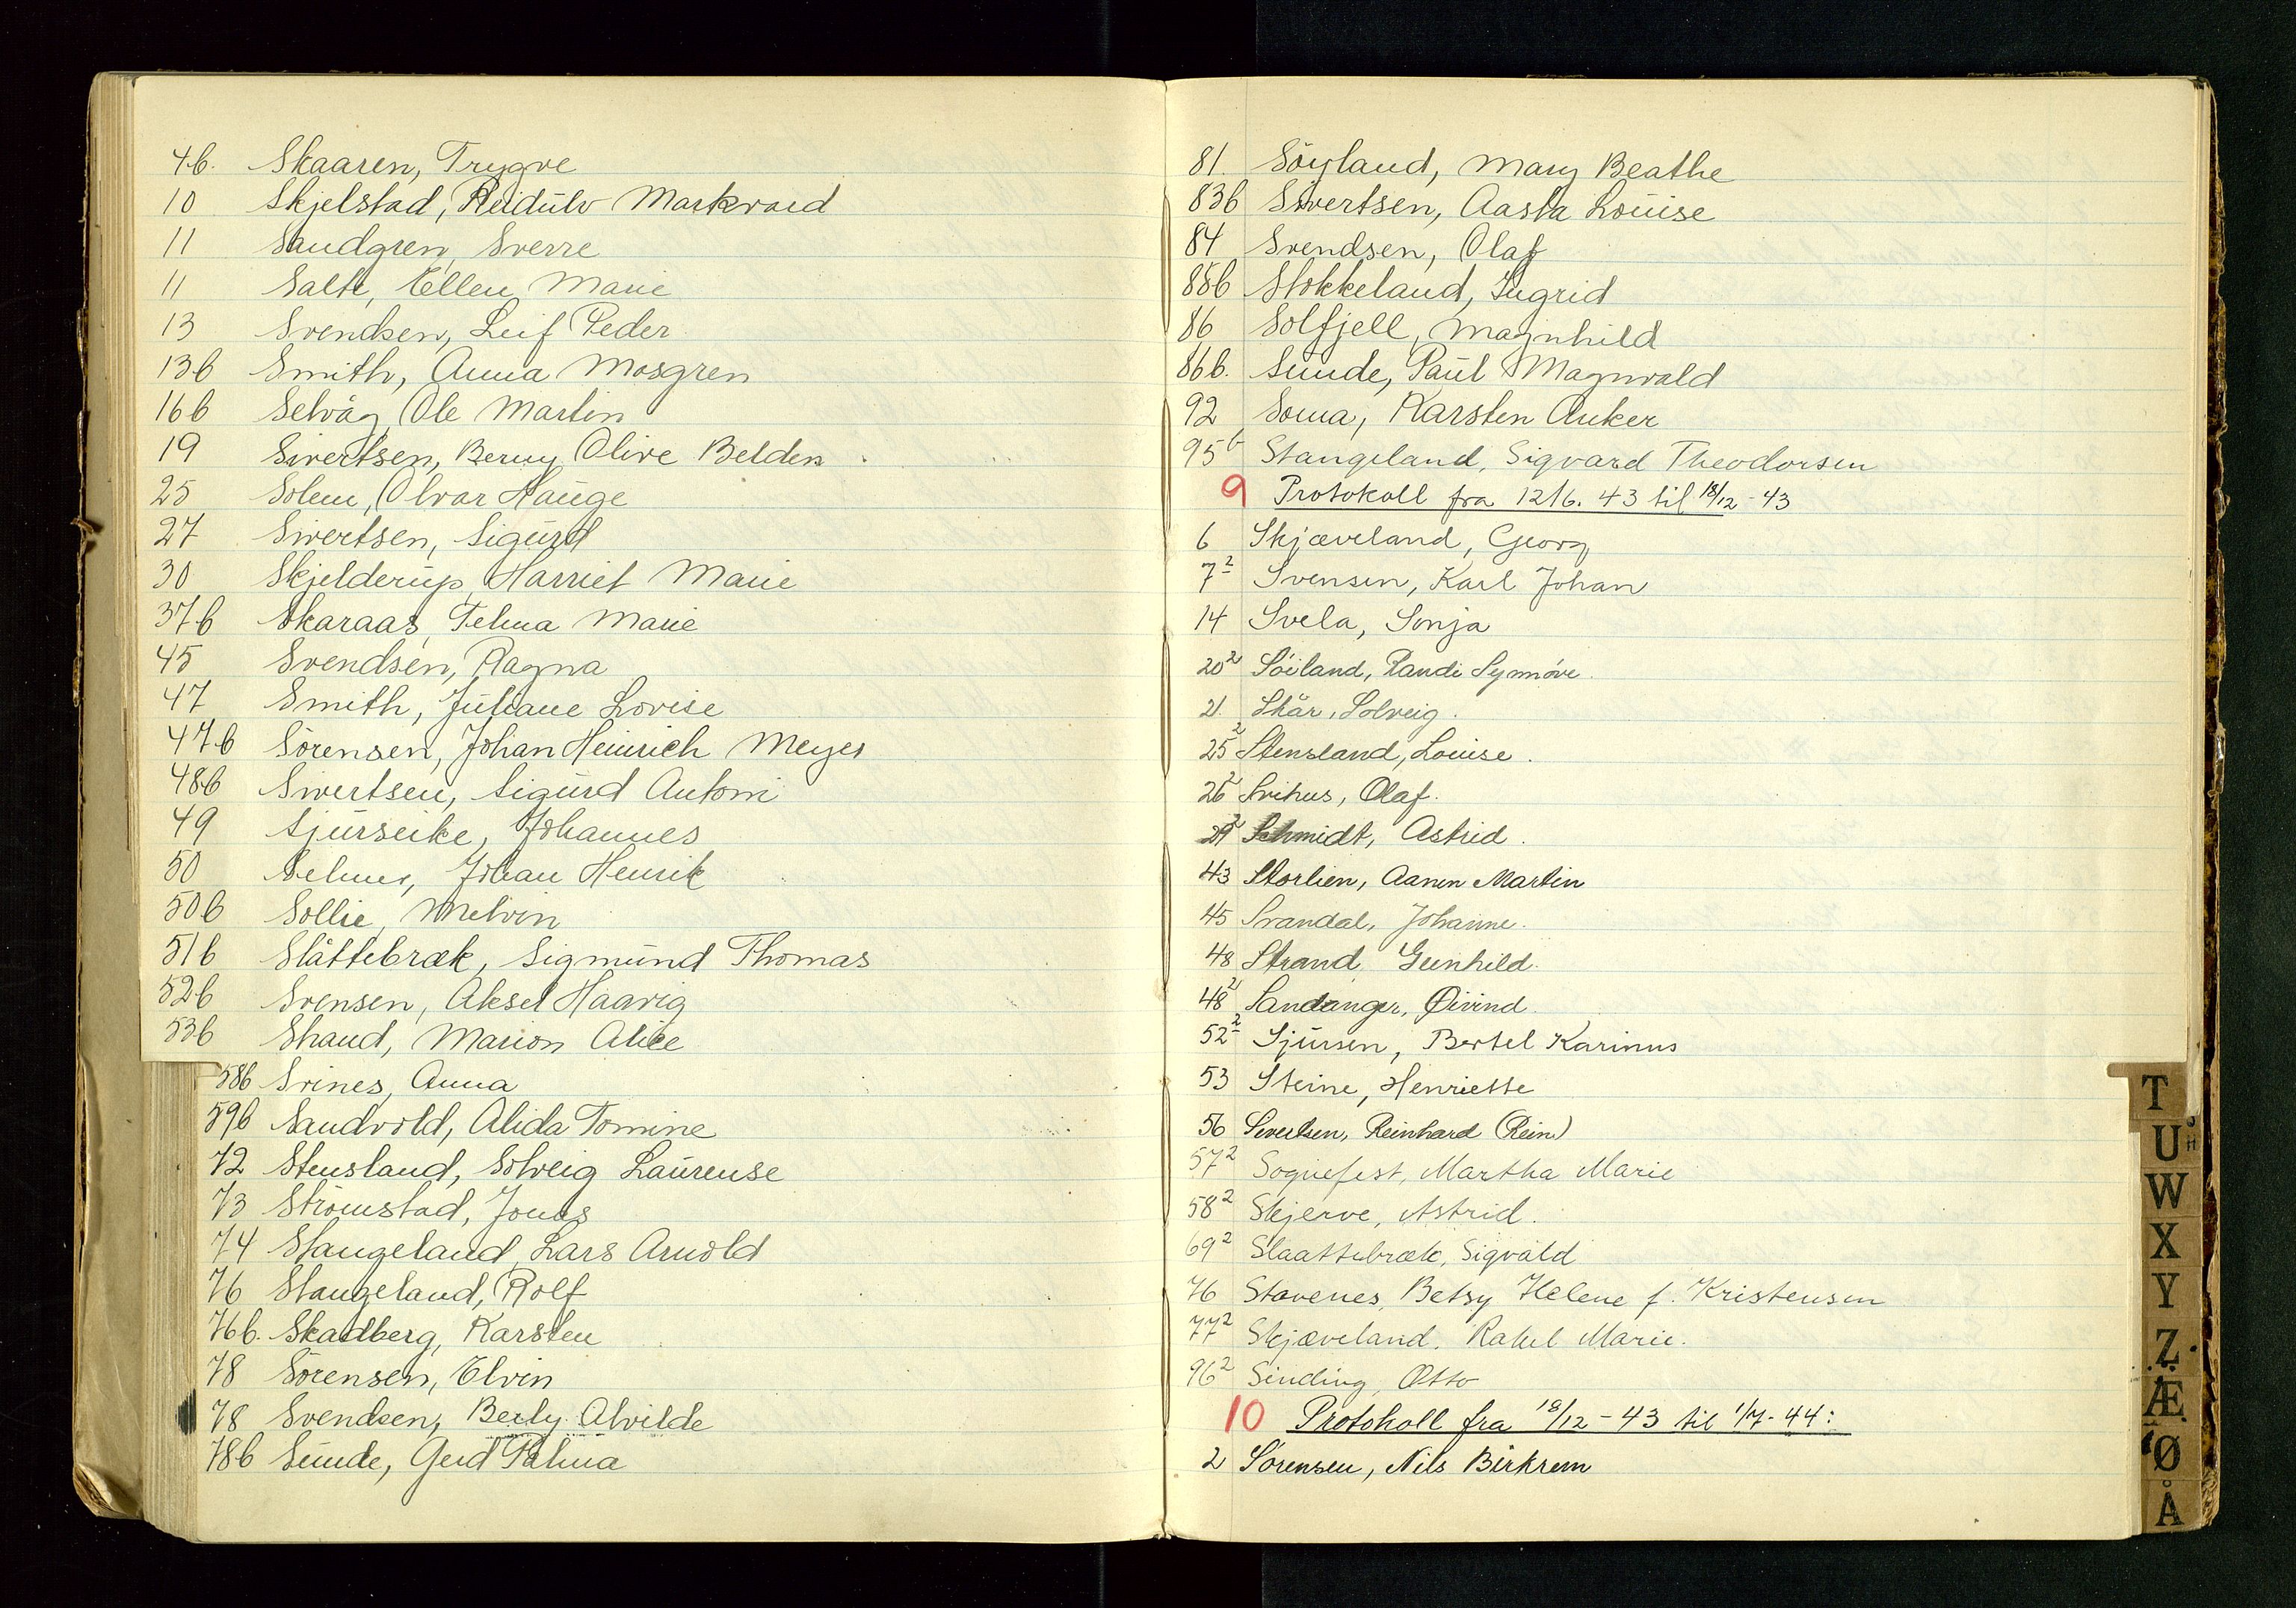 4b. Skaaren, Trygve
10 Skjelstad, Reidulv Markvard
11 Sandgren, Sverre
11 Salte, Ellen Marie
13 Svendsen, Leif Peder
13b Smith, Anna Mosgren
16b Selvåg, Ole Martin
19 Sivertsen, Berny Olive Belden
25 Solem, Olvar Hauge
27 Sivertsen, Sigurd
30 Skjelderup, Harriet Marie
37b Skaraas, Telma Marie
45 Svendsen, Ragna
47 Smith, Juliane Lovise
47b Sörensen, Johan Heinrich Meyer
48b Sivertsen, Sigurd Antoni
49 Sjurseike, Johannes
50 Selmer, Johan Henrik
50b Sollie, Melvin
51b Slåttebræk, Sigmund Thomas
52b Svensen, Aksel Haavig
53b Shand, Marion Alice
58b Svines, Anna
59b Sandvold, Alida Tomine
72 Stensland, Solveig Laurense
73 Strömstad, Jonas
74 Stangeland, Lars Arnold
76 Stangeland, Rolf
76b. Skadberg, Karsten
78 Sörensen, Elvin
78 Svendsen, Berly Alvilde
78b Sunde, Gerd Palma
81. Söyland, Mary Beathe
83b Sivertsen, Aasta Louise
84 Svendsen, Olaf
85b Stokkeland, Ingrid
86 Solfjell, Magnhild
86b. Sunde, Paul Magnvald
92 Soma, Karsten Anker
95b Stangeland, Sigvard Theodorsen
9 Protokoll fra 12/6. 43 til 18/12-43
6 Skjæveland, Georg
7² Svensen, Karl Johan
14 Svela, Sonja
20² Söiland, Randi Synnöve.
21. Skår, Solveig.
25² Stensland, Louise.
26² Svihus, Olaf.
29² Schmidt, Astrid.
43 Storlien, Aanen Martin
45 Svandal, Johanne.
48 Strand, Gunhild.
48² Sandanger, Øivind.
52² Sjursen, Bertel Karinus
53 Steine, Henriette
56 Sivertsen, Reinhard (Rein)
57² Sognefest, Martha Marie
58² Skjerve, Astrid.
69² Slaattebræk, Sigvald
76 Stavenes, Betsy Helene f. Kristensen
77² Skjæveland, Rakel Marie.
96² Sinding, Otto
10 Protokoll fra 18/12-43 til 1/7-44:
2 Sörensen, Nils Birkrem
T
U
W
X
Y
Z
Æ
Ø
Å